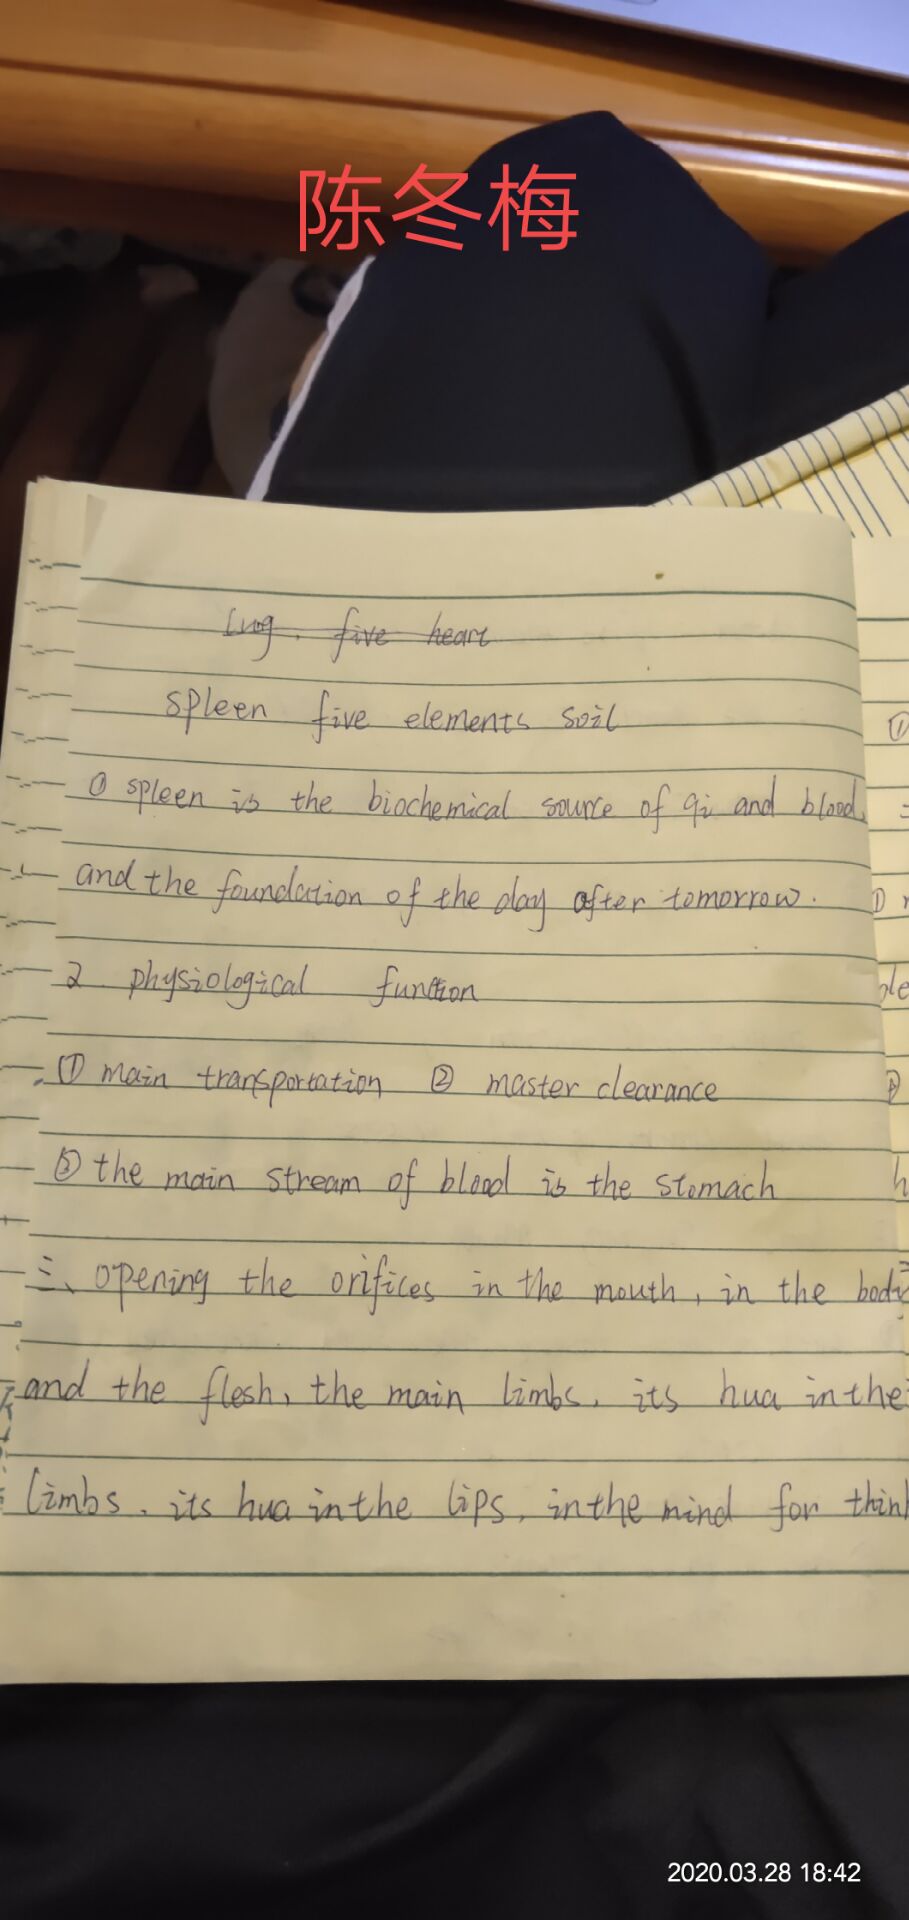 陈冬梅
Lug. five heart
spleen five elements soil
① spleen is the biochemical source of qi and blood,
and the foundation of the day after tomorrow.
2 physiological function
① main transportation ② master clearance
③ the main stream of blood is the stomach
三、opening the orifices in the mouth, in the body
and the flesh, the main limbs. its hua in the
limbs. its hua in the lips. in the mind for think
2020.03.28 18:42